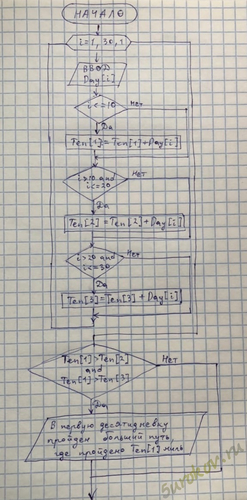 НАЧАЛО
i=1,30,1
ВВОД
Day[i]
i<=10
Нет
Да
Ten[1]=Ten[1]+Day[i]
i>10 and
i<=20
Нет
Да
Ten[2]=Ten[2]+Day[i]
i>20 and
i<=30
Нет
Да
Ten[3]=Ten[3]+Day[i]
Ten[1]>Ten[2]
and
Ten[1]>Ten[3]
Нет
Да
В первую десятидневку
пройден больший путь,
где пройдено Ten[1] миль
5urokov.ru